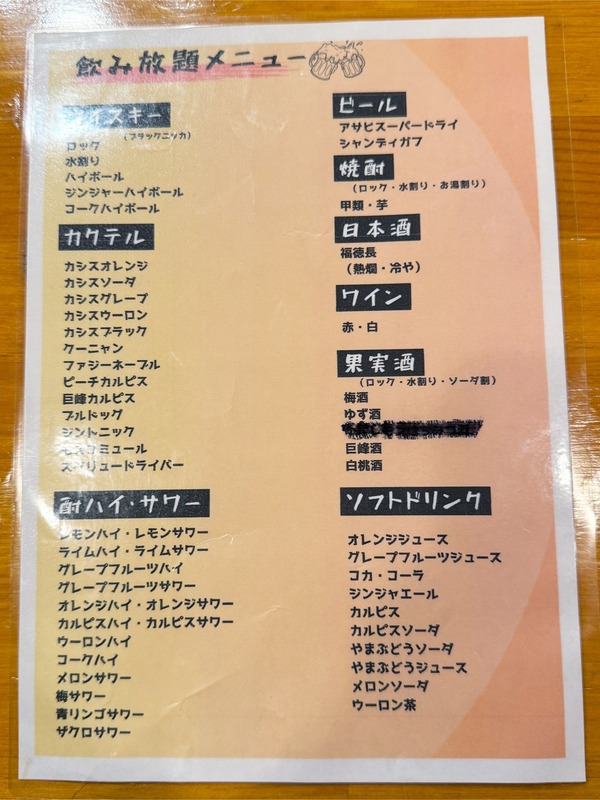 飲み放題メニュー
イスキー
(ブラックニッカ)
ロック
水割り
ハイボール
ジンジャーハイボール
コークハイボール
カクテル
カシスオレンジ
カシスソーダ
カシスグレープ
カシスウーロン
カシスブラック
クーニャン
ファジーネーブル
ピーチカルピス
巨峰カルピス
ブルドッグ
ジントニック
モスコミュール
スクリュードライバー
酎ハイ・サワー
レモンハイ・レモンサワー
ライムハイ・ライムサワー
グレープフルーツハイ
グレープフルーツサワー
オレンジハイ・オレンジサワー
カルピスハイ・カルピスサワー
ウーロンハイ
コークハイ
メロンサワー
梅サワー
青リンゴサワー
ザクロサワー
ビール
アサヒスーパードライ
シャンディガフ
焼酎
(ロック・水割り・お湯割り)
甲類・芋
日本酒
福徳長
(熱燗・冷や)
ワイン
赤・白
果実酒
(ロック・水割り・ソーダ割)
梅酒
ゆず酒
巨峰酒
白桃酒
ソフトドリンク
オレンジジュース
グレープフルーツジュース
コカ・コーラ
ジンジャエール
カルピス
カルピスソーダ
やまぶどうソーダ
やまぶどうジュース
メロンソーダ
ウーロン茶